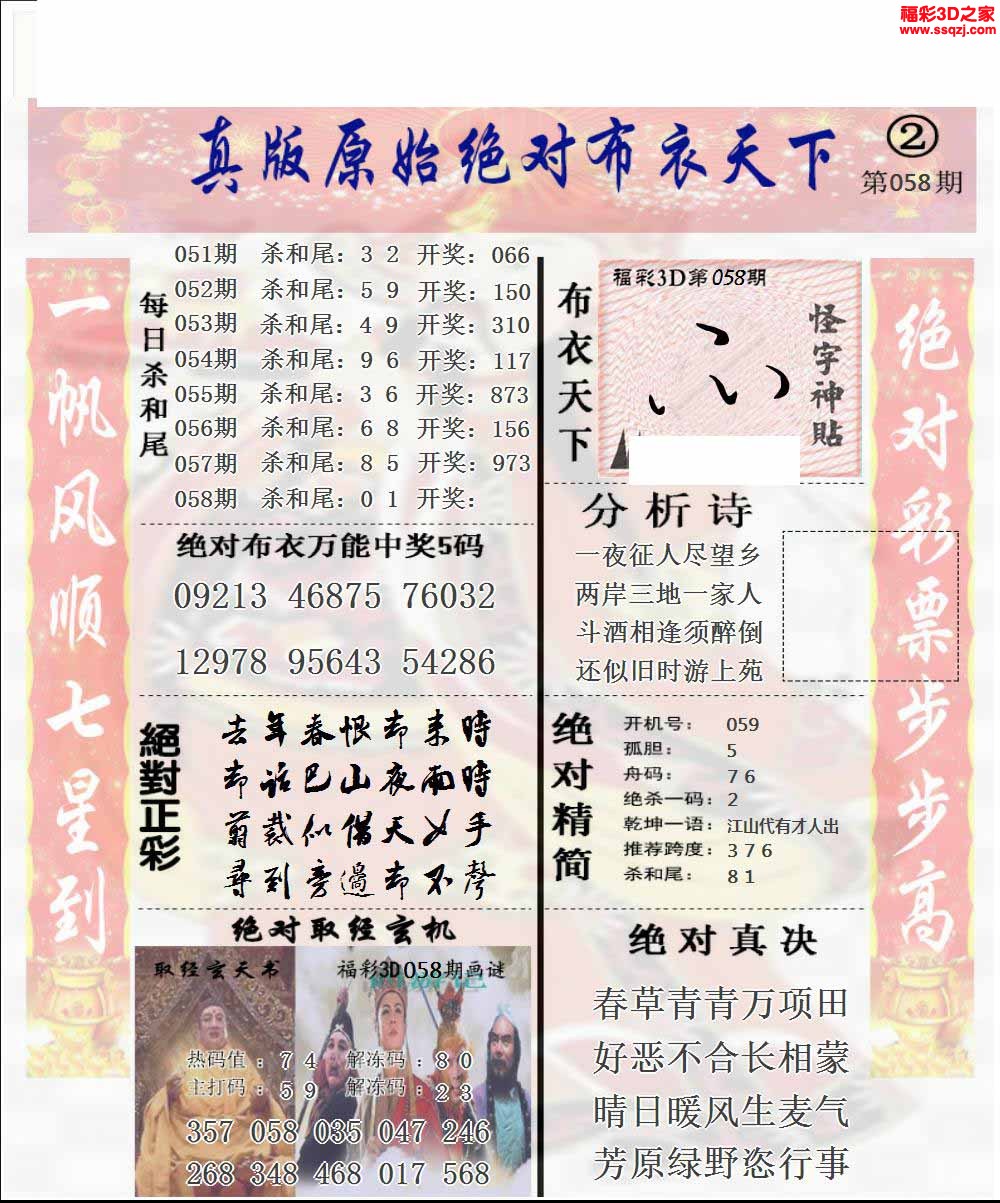 福彩3D之家
www.ssqzj.com
真版原始绝对布衣天下
②
第058期
一帆风顺七星到
每日杀和尾
051期 杀和尾：3 2 开奖：066
052期 杀和尾：5 9 开奖：150
053期 杀和尾：4 9 开奖：310
054期 杀和尾：9 6 开奖：117
055期 杀和尾：3 6 开奖：873
056期 杀和尾：6 8 开奖：156
057期 杀和尾：8 5 开奖：973
058期 杀和尾：0 1 开奖：
绝对布衣万能中奖5码
09213 46875 76032
12978 95643 54286
絕對正彩
去年春恨却来時
却话巴山夜雨時
剪裁似借天女手
尋到旁邊却不聲
绝对取经玄机
取经玄天书
福彩3D058期画谜
热码值：7 4 解冻码：8 0
主打码：5 9 解冻码：2 3
357 058 035 047 246
268 348 468 017 568
布衣天下
福彩3D第058期
怪字神贴
分析诗
一夜征人尽望乡
两岸三地一家人
斗酒相逢须醉倒
还似旧时游上苑
绝对精简
开机号： 059
孤胆： 5
舟码： 7 6
绝杀一码：2
乾坤一语：江山代有才人出
推荐跨度：3 7 6
杀和尾： 8 1
绝对真决
春草青青万项田
好恶不合长相蒙
晴日暖风生麦气
芳原绿野恣行事
绝对彩票步步高